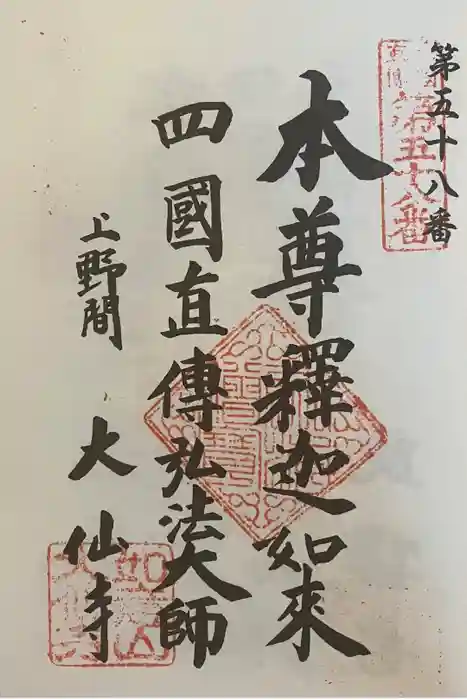 第五十八番
第五十八番
本尊釋迦如來
四國直傳弘法大師
上野間 大仙寺